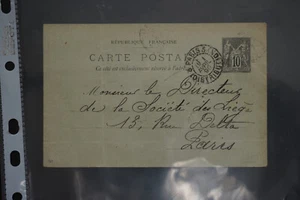 RÉPUBLIQUE FRANÇAISE
CARTE POSTALE
Ce côté est exclusivement réservé à l'adresse
10
Monsieur le Directeur
de la Société des Lièges
13, Rue Delta
Paris